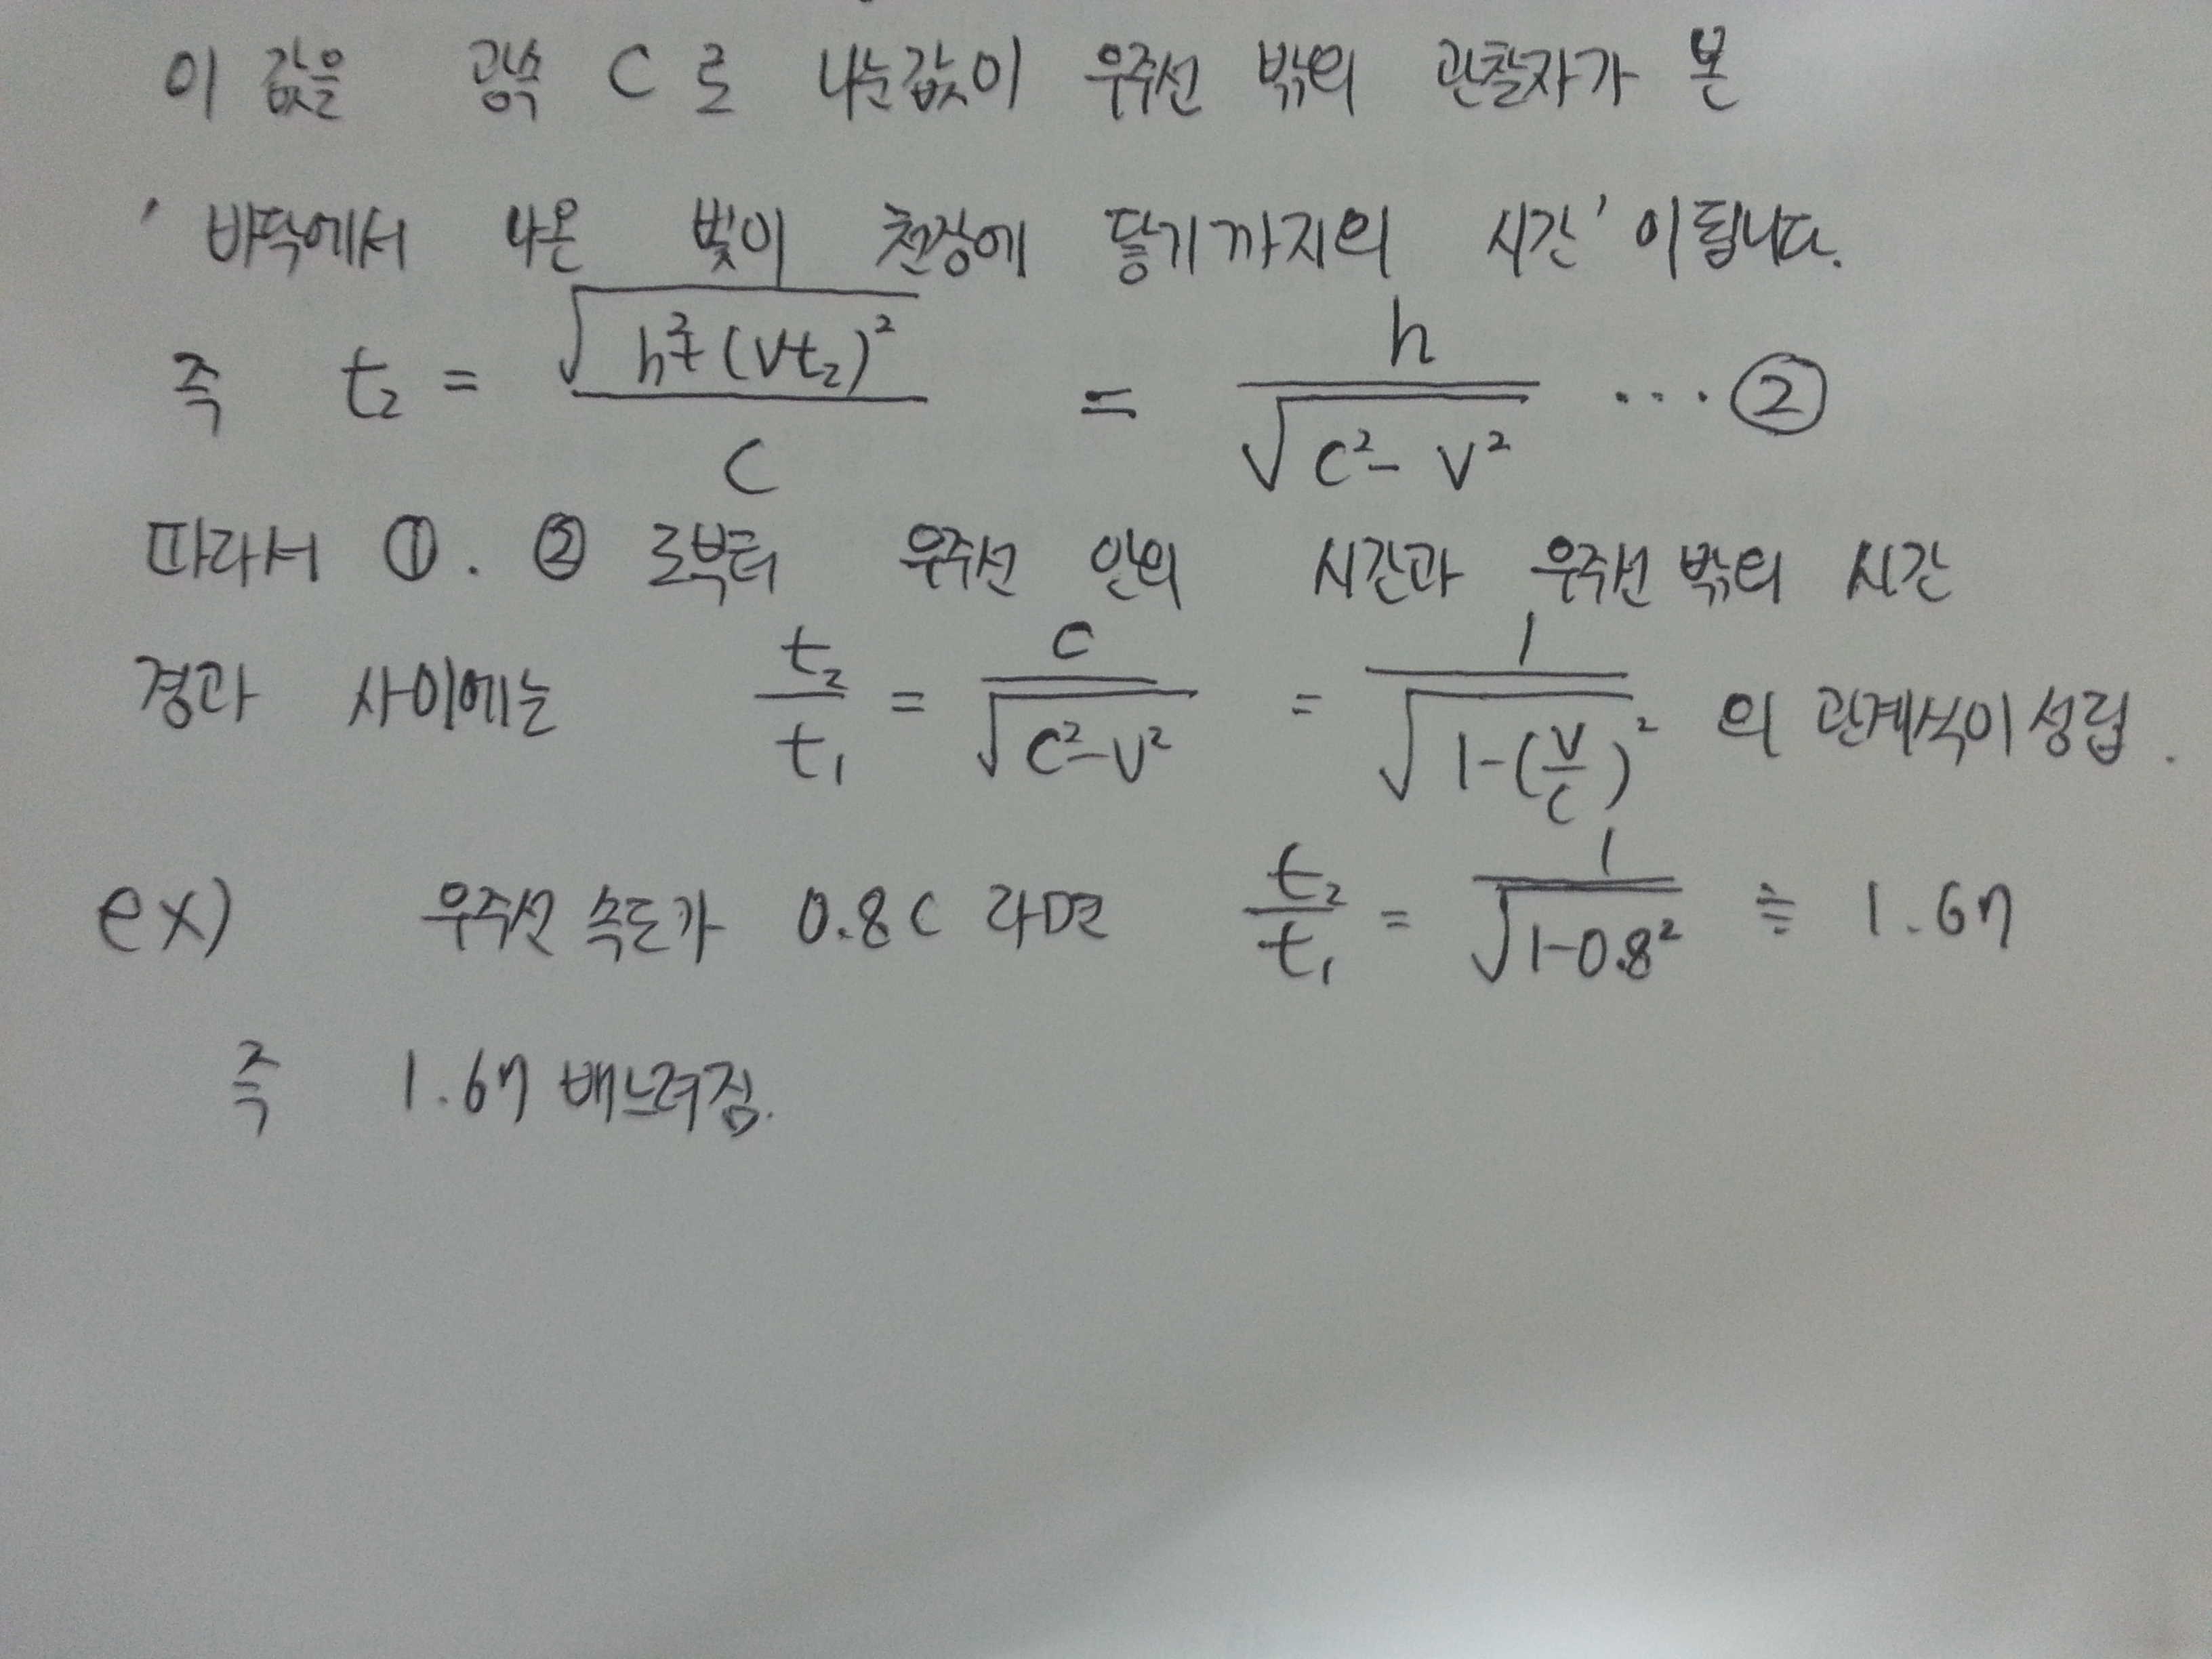 이 값을 광속 C로 나눈값이 우주선 밖의 관찰자가 본
'바닥에서 나온 빛이 천장에 닿기까지의 시간' 이 됩니다.
즉 t₂ = √(h²+(Vt₂)²) / C = h / √(C²-V²) ... ②
따라서 ①. ② 로부터 우주선 안의 시간과 우주선 밖의 시간
경과 사이에는 t₂/t₁ = C / √(C²-V²) = 1 / √(1-(V/C)²) 의 관계식이 성립.
ex) 우주선 속도가 0.8C 라면 t₂/t₁ = 1 / √(1-0.8²) ≒ 1.67
즉 1.67 배느려짐.